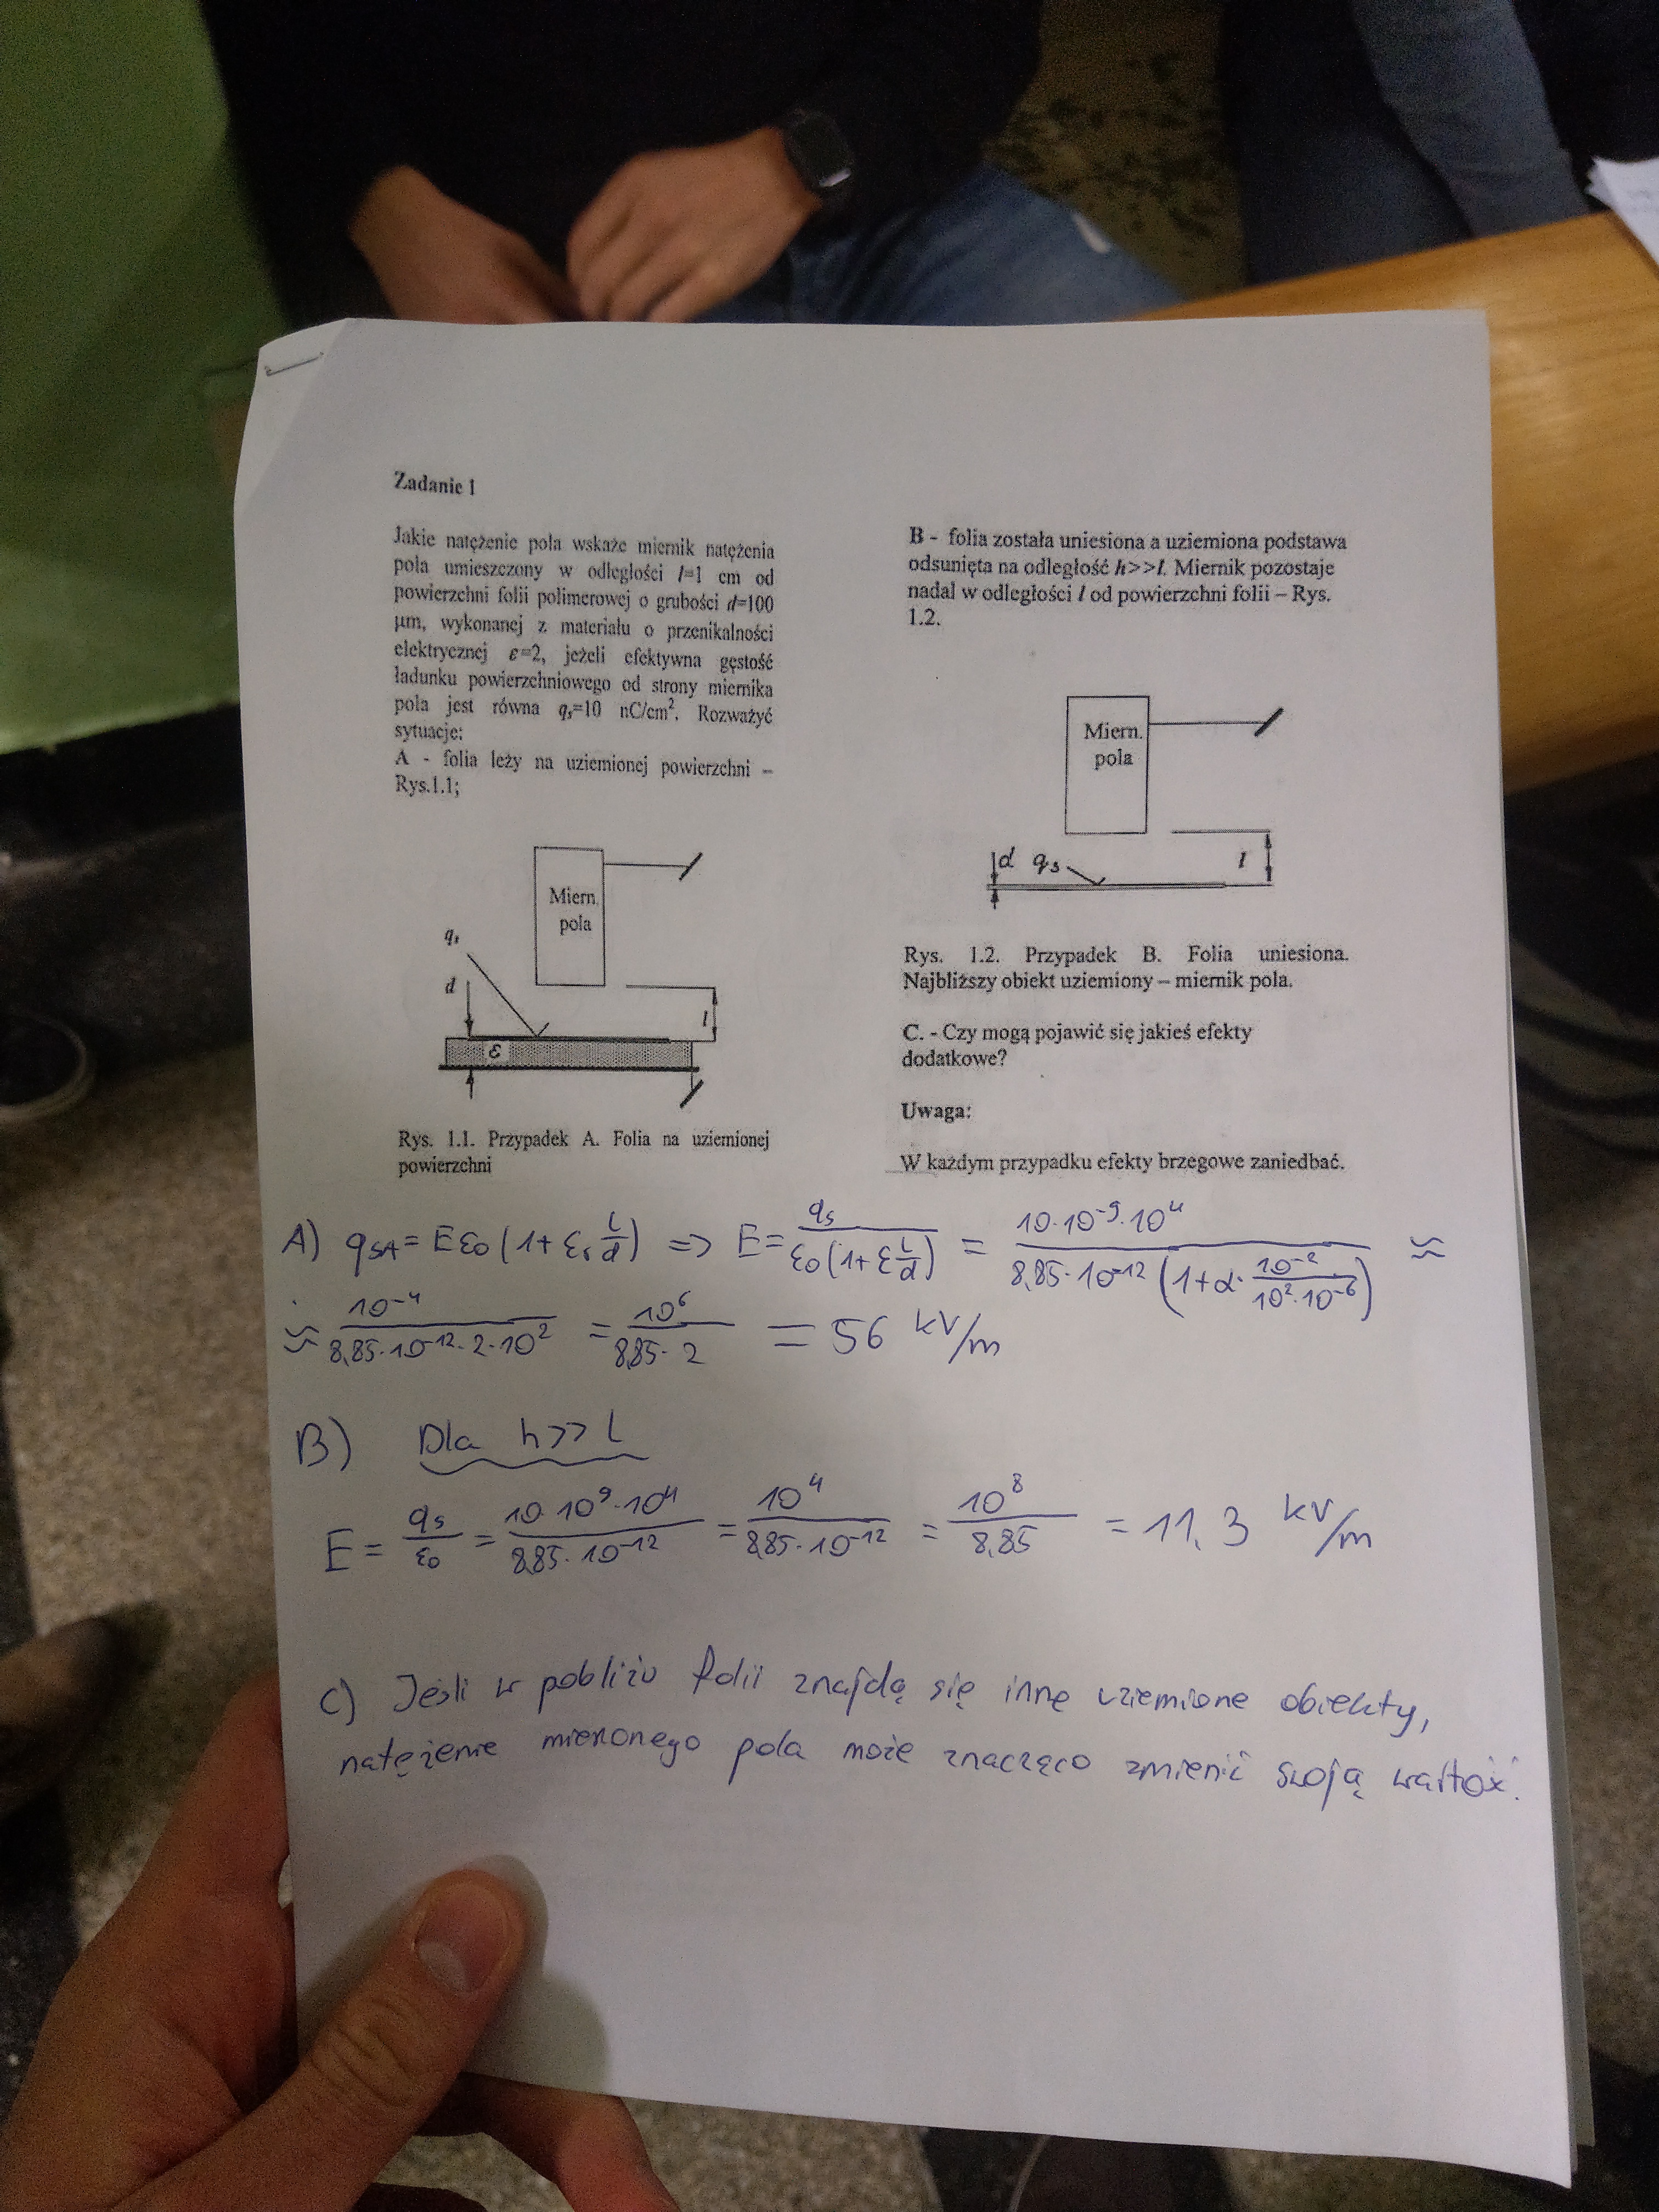 Zadanie 1
Jakie natężenie pola wskaże miernik natężenia
pola umieszczony w odległości l=1 cm od
powierzchni folii polimerowej o grubości d=100
μm, wykonanej z materiału o przenikalności
elektrycznej ε=2, jeżeli efektywna gęstość
ładunku powierzchniowego od strony miernika
pola jest równa qₛ=10 nC/cm². Rozważyć
sytuacje:
A - folia leży na uziemionej powierzchni –
Rys.1.1;
Miern.
pola
qₛ
d
l
ε
Rys. 1.1. Przypadek A. Folia na uziemionej
powierzchni
B - folia została uniesiona a uziemiona podstawa
odsunięta na odległość h>>l. Miernik pozostaje
nadal w odległości l od powierzchni folii – Rys.
1.2.
Miern.
pola
d qₛ l
Rys. 1.2. Przypadek B. Folia uniesiona.
Najbliższy obiekt uziemiony – miernik pola.
C. - Czy mogą pojawić się jakieś efekty
dodatkowe?
Uwaga:
W każdym przypadku efekty brzegowe zaniedbać.
A) qSA = Eε₀(1+εᵣ l/d) => E = qₛ/(ε₀(1+ε l/d)) = 10·10⁻⁹·10⁴/(8,85·10⁻¹²(1+2·10⁻²/(10²·10⁻⁶))) ≈
≈ 10⁻⁴/(8,85·10⁻¹²·2·10²) = 10⁶/(8,85·2) = 56 kV/m
B) Dla h>>l
E = qₛ/ε₀ = 10·10⁹·10⁴/(8,85·10⁻¹²) = 10⁴/(8,85·10⁻¹²) = 10⁸/8,85 = 11,3 kV/m
C) Jeśli w pobliżu folii znajdą się inne uziemione obiekty,
natężenie mierzonego pola może znacząco zmienić swoją wartość.